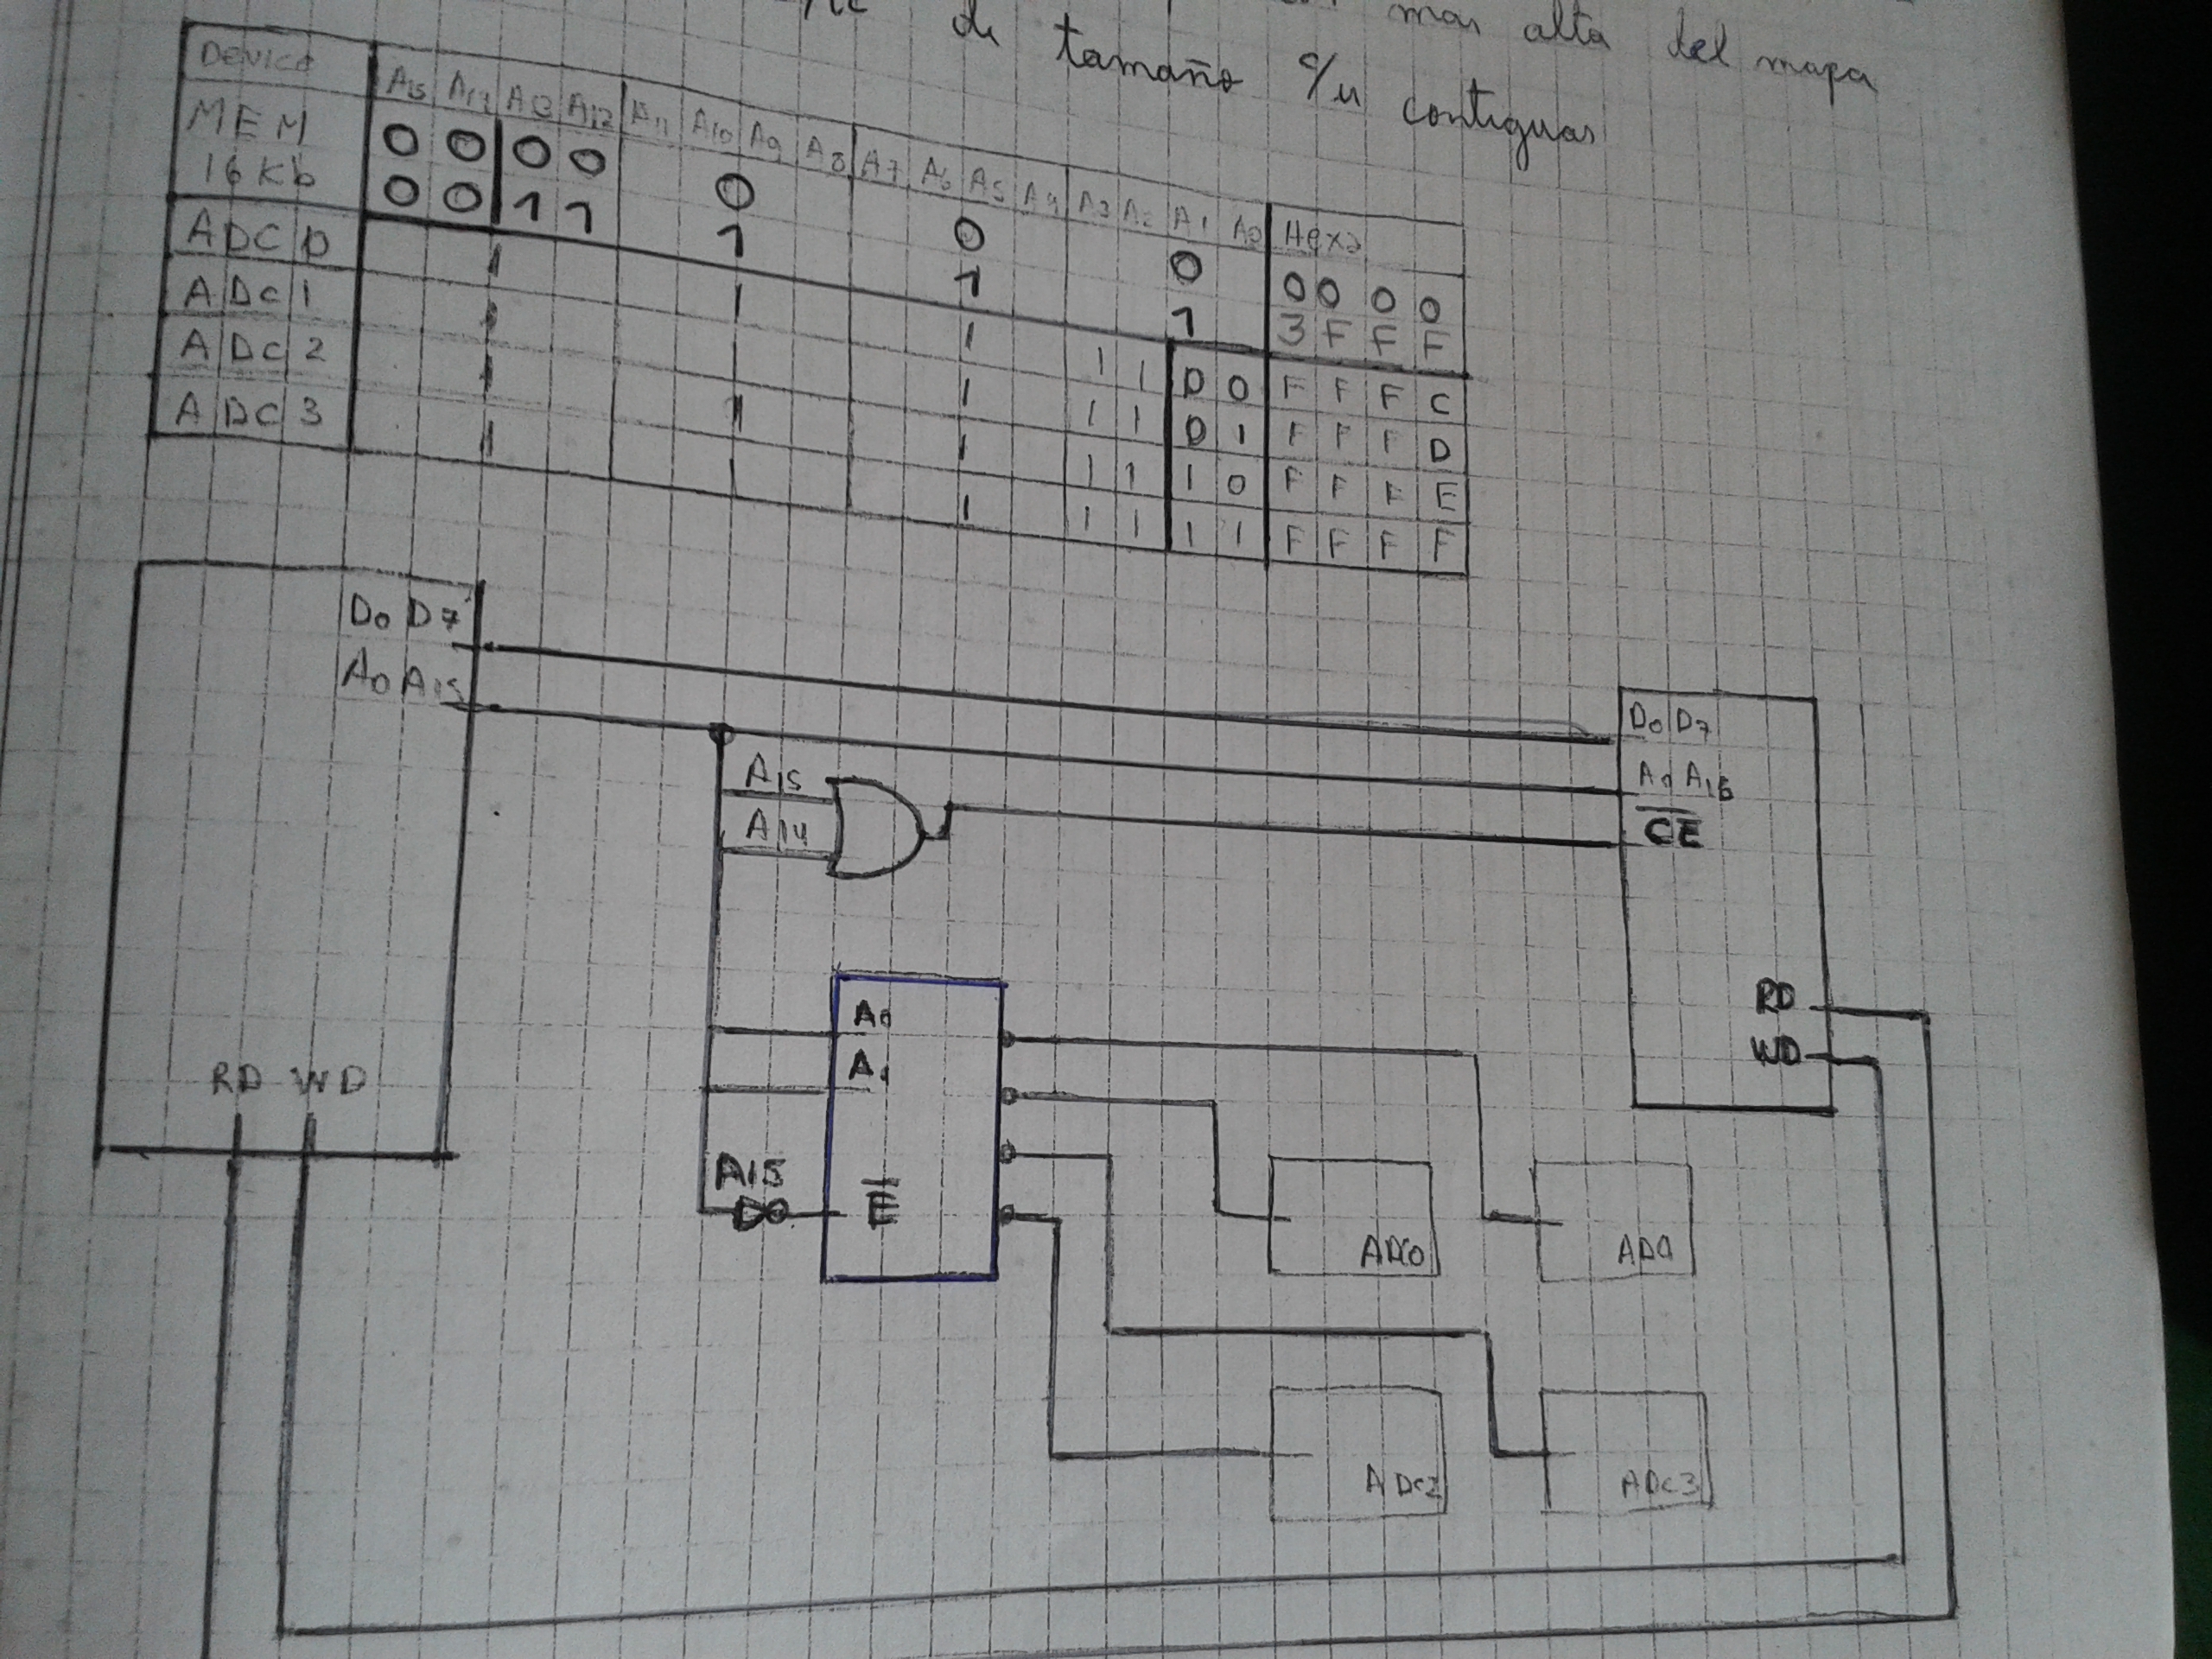 de mas alta del mapa
tamaño c/u contiguas
Device A15 A14 A13 A12 A11 A10 A9 A8 A7 A6 A5 A4 A3 A2 A1 A0 Hexa
MEM 0 0 0 0 0 0 0 0 0 0 0
16 Kb 0 0 1 1 1 1 1 3 F F F
ADC 0 1 1 1 1 1 0 0 F F F C
ADC 1 1 1 1 1 1 0 1 F F F D
ADC 2 1 1 1 1 1 1 0 F F F E
ADC 3 1 1 1 1 1 1 1 F F F F
D0 D7
A0 A15
D0 D7
A15
A0 A15
A14
CE
RD
A0
WD
A1
RD WD
A15
E
ADC0
ADC2
ADC3